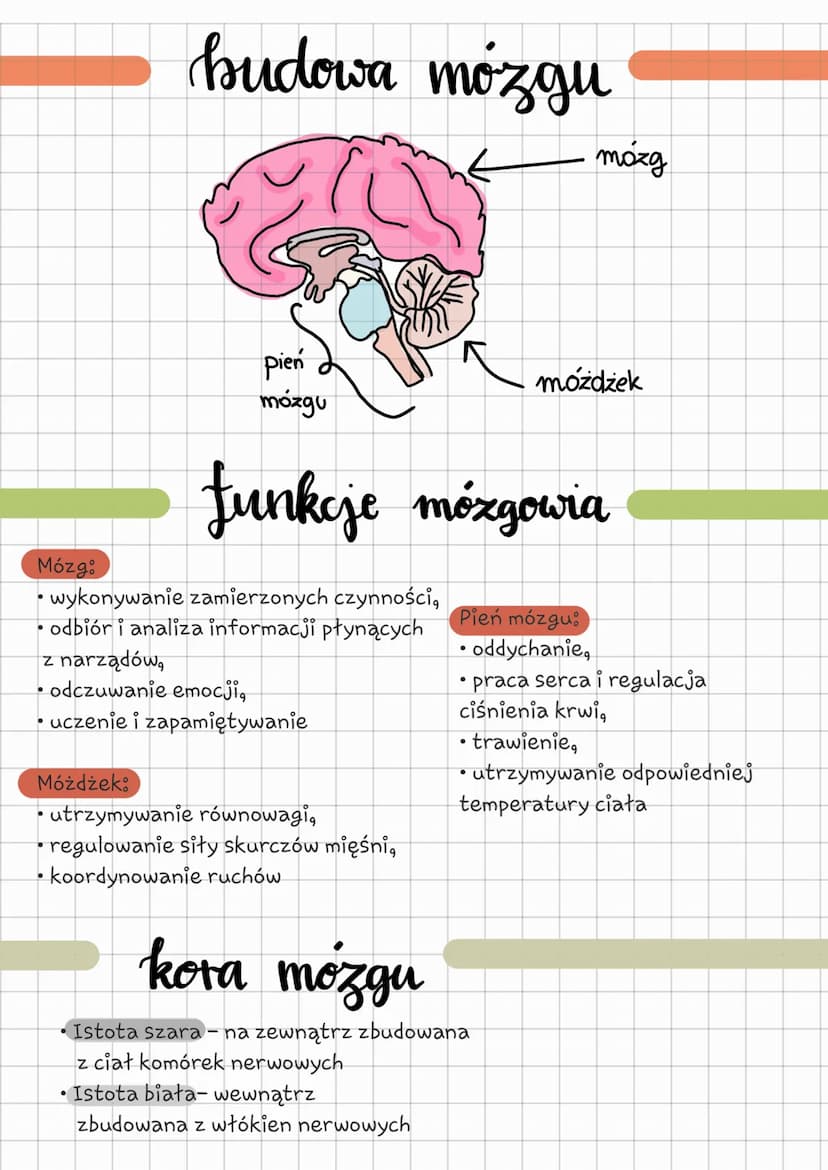 budowa mózgu
mózg
pień
mózgu
móżdżek
funkcje mózgowia
Mózg:
• wykonywanie zamierzonych czynności,
• odbiór i analiza informacji płynących
z narządów,
• odczuwanie emocji,
• uczenie i zapamiętywanie
Móżdżek:
• utrzymywanie równowagi,
• regulowanie siły skurczów mięśni,
• koordynowanie ruchów
Pień mózgu:
• oddychanie,
• praca serca i regulacja
ciśnienia krwi,
• trawienie,
• utrzymywanie odpowiedniej
temperatury ciała
kora mózgu
• Istota szara – na zewnątrz zbudowana
z ciał komórek nerwowych
• Istota biała– wewnątrz
zbudowana z włókien nerwowych